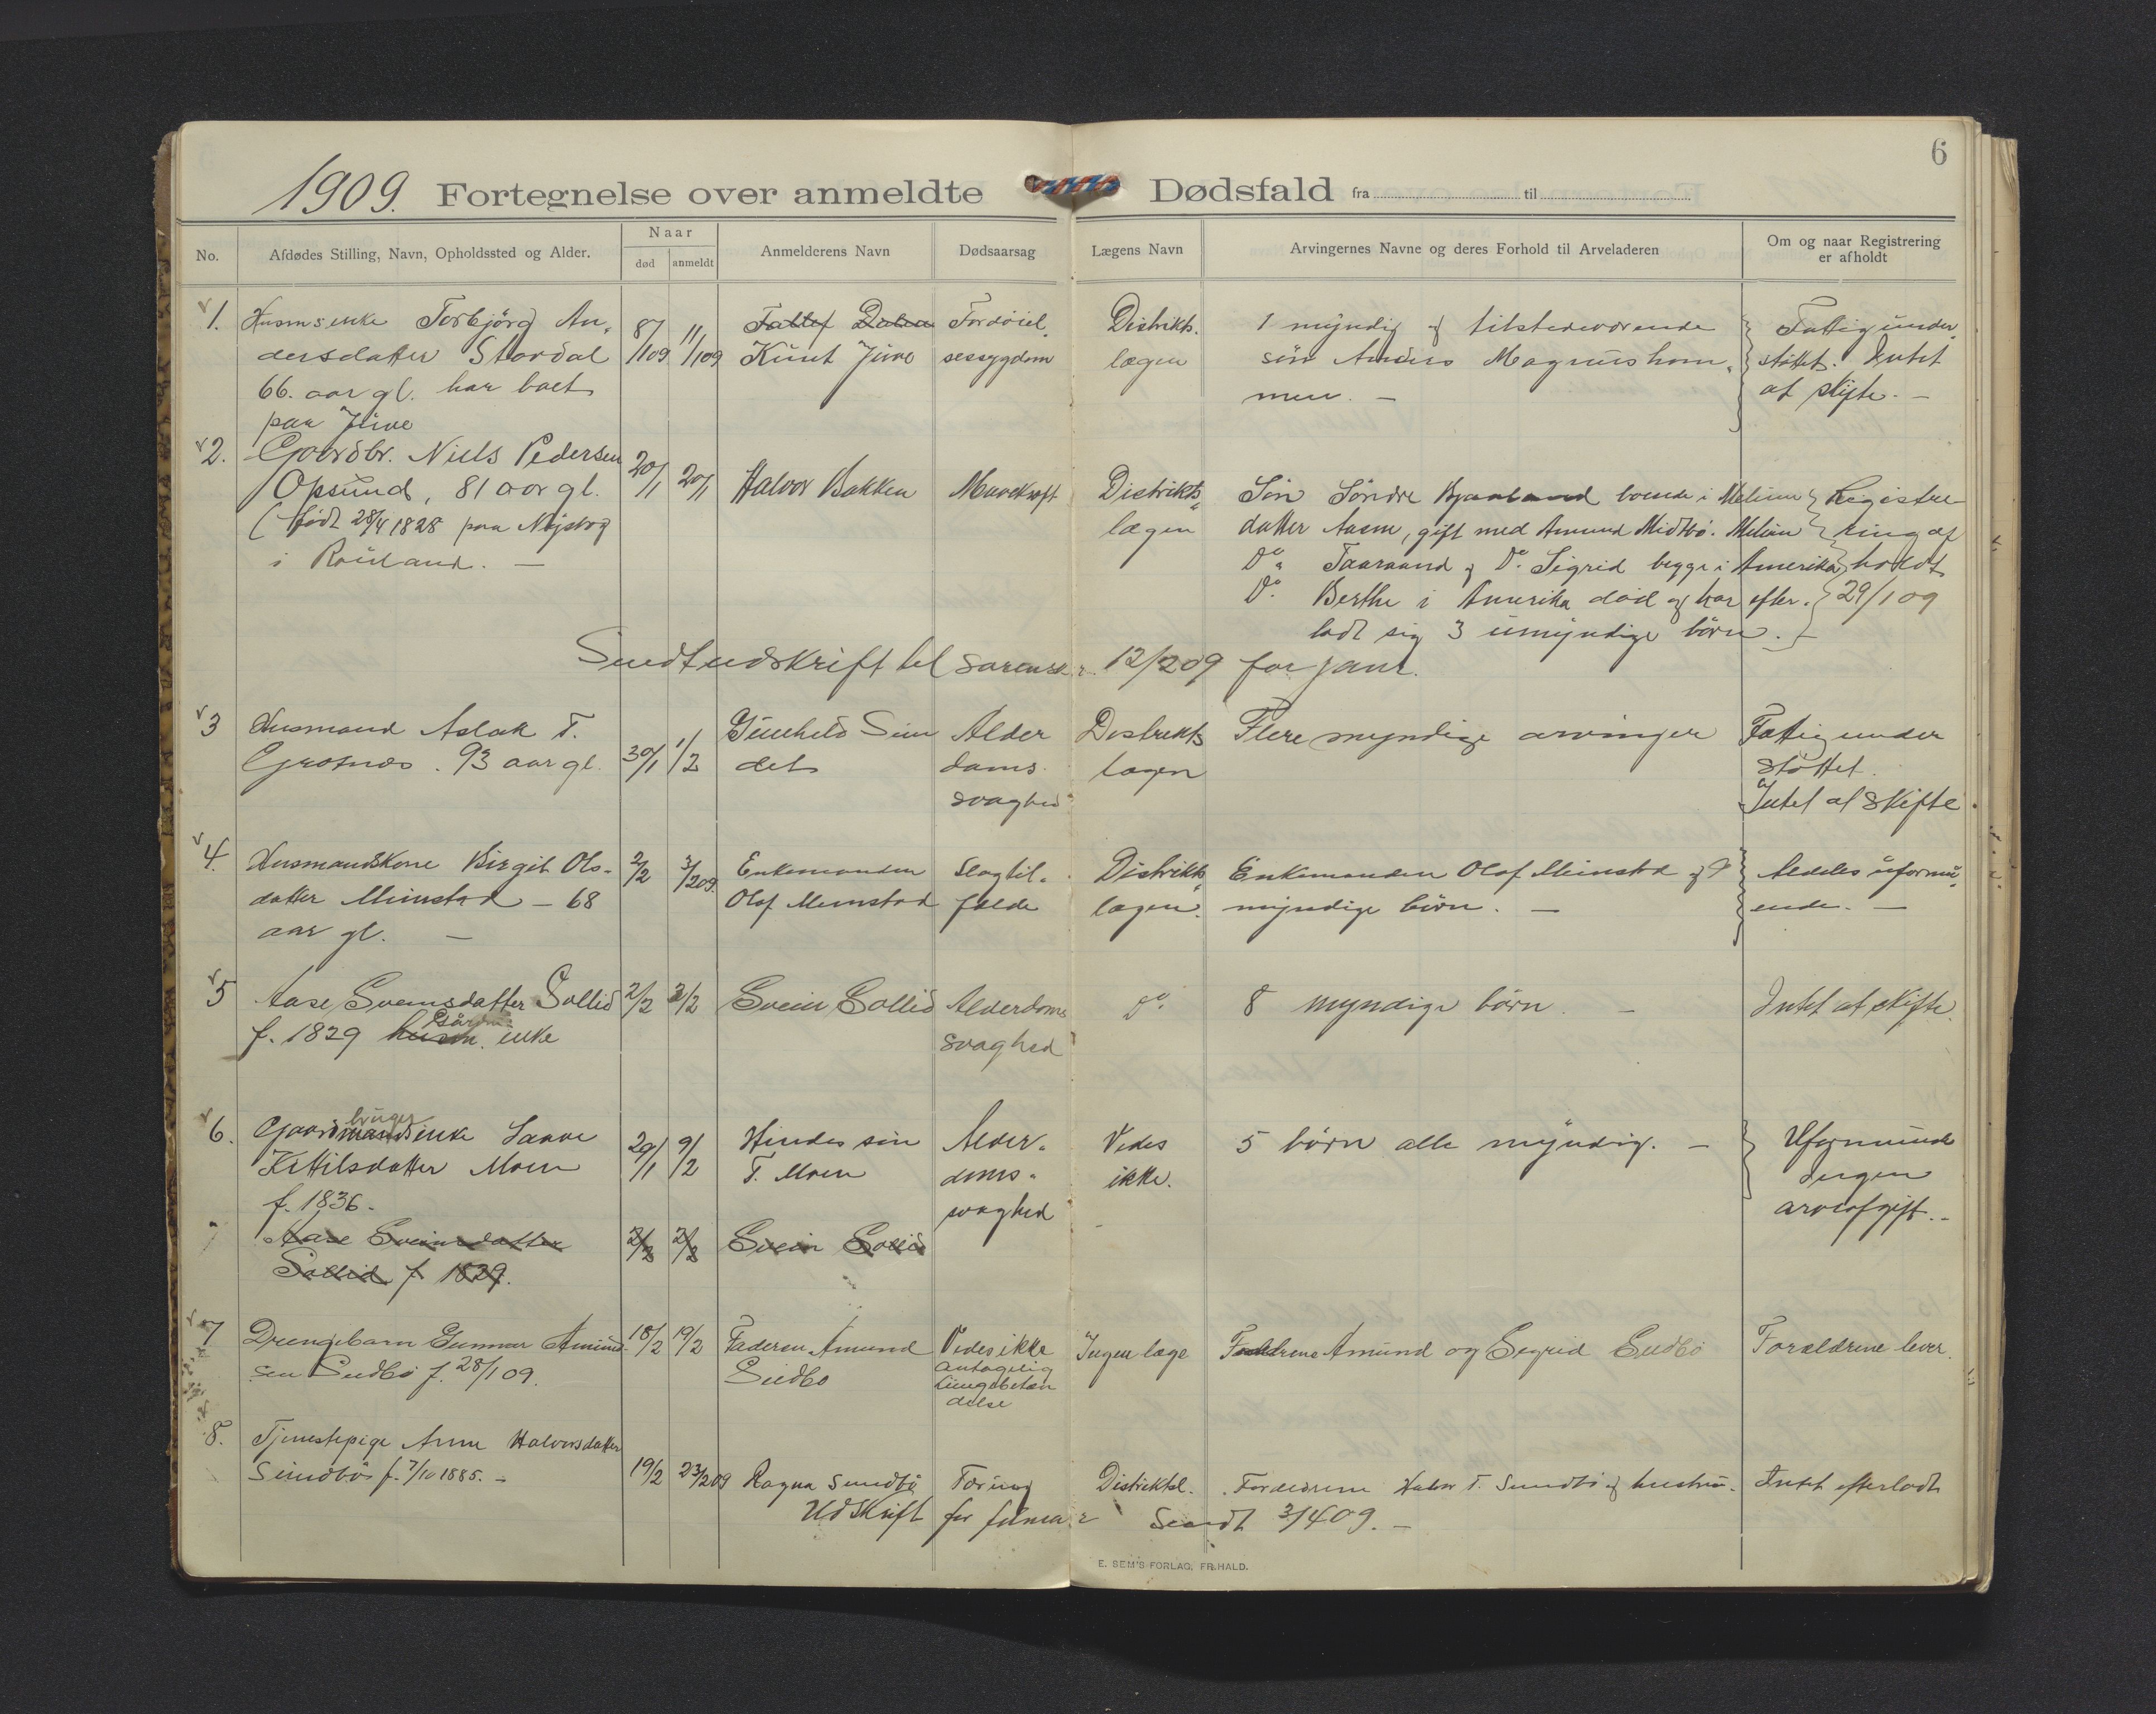 6
1909. Fortegnelse over anmeldte Dødsfald fra til
No.
Afdødes Stilling, Navn, Opholdssted og Alder.
Naar
død
anmeldt
Anmelderens Navn
Dødsaarsag
Lægens Navn
Arvingernes Navne og deres Forhold til Arveladeren
Om og naar Registrering
er afholdt
1.
Husmsenke Torbjörg An-
dersdatter Stordal
66. aar gl. har boet
paa Juve
8/
1/09
11/
1/09
Knut Juve
Fordöiel-
sessygdom
Distrikts-
lægen
1 myndig og tilstedeværende
sön Anders Magnushom-
men. -
Fattigunder-
støttet. Intet
at skifte. -
2.
Gaardbr. Niels Pedersen
Opsund, 81 aar gl.
(född 28/4 1828 paa
i Rauland. -
20/1
20/1
Halvor Bakken
Mavekræft
Distrikts-
lægen
Sön Söndre boende i
datter Aasne, gift med Amund Midtbö.
Do. Taaraand og Do. Sigrid begge i Amerika
Do. Berthe i Amerika död og har efter-
ladt sig 3 umyndige börn. -
Registre-
ring af
holdt
29/1 09
Sendt udskrift til sorensk. 12/2 09 for janr.
3
Husmand Aslak T.
Grotnes. 93 aar gl.
30/1
1/2
Gunhild Sun
det
Alder
doms
svaghed
Distrikts
lægen
Flere myndige arvinger
Fattigunder
støttet.
Intet at skifte.
4.
Husmandskone Birgit Ols-
datter Meinstad - 68
aar gl. -
2/2
3/2 09.
Enkemanden
Olaf Meinstad
Slagtil-
fælde
Distrikts-
lægen.
Enkemanden Olaf Meinstad og 7
myndige börn. -
Aldeles uformu-
ende. -
5
Aase Sveinsdatter Sollid
f. 1829 husm. enke
2/2
3/2
Svein Sollid
Alderdoms
svaghed
Do.
8 myndige börn. -
Intet at skifte.
6.
bruger
Gaardmandsenke
Kittilsdatter Moen
f. 1836.
29/1
9/2
Hendes sön
T. Moen
Alder-
doms-
svaghed
Vides
ikke.
5 börn alle myndig. -
Uformuend
Ingen
arveafgift. -
Aase Sveinsdatter
Sollid f. 1829.
2/2
2/2
Svein Sollid
7
Drengebarn Gunnar Amund-
sen Sudbö f. 28/1 09.
18/2
19/2
Faderen Amund
Sudbö
Vides ikke
antagelig
lungebetæn
delse
Ingen læge
Amund og Sigrid Sudbö
Forældrene lever.
8.
Tjenestepige Anne Halvorsdatter
Sundbö f. 7/10 1885. -
19/2
23/2 09
Ragna Sundbö
Tæring
Distriktsl.
Forældrene Halvor T. Sundbö og hustru.
Intet efterladt
Udskrift for februar sendt 3/4 09. -
E. SEM'S FORLAG, FR.HALD.